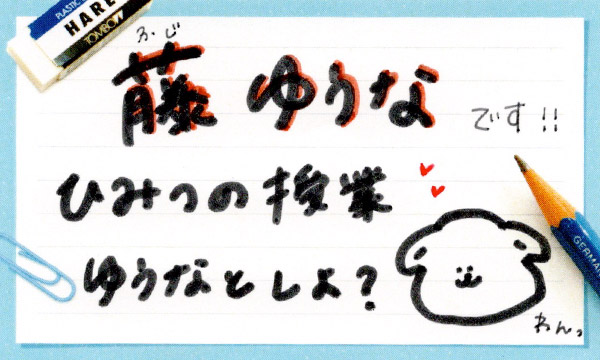 PLASTIC
HARE
TOMBOW
ふじ
藤 ゆうな です!!
ひみつの授業
ゆうなとしよ?
GERMAN
わんっ